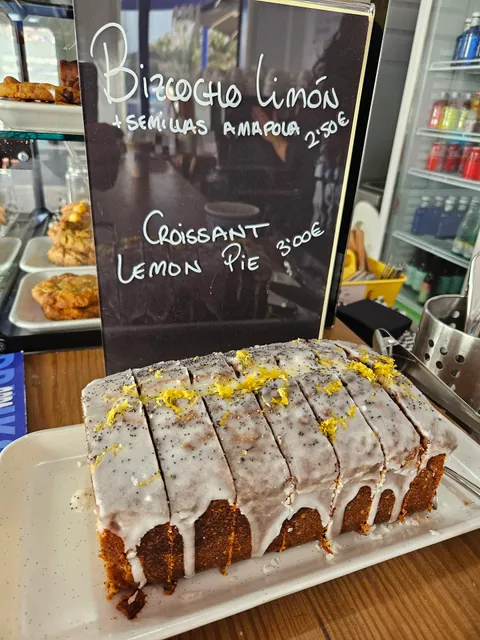 Bizcocho Limón
+ SEMILLAS AMAPOLA 2'50€
CROISSANT
LEMON PIE 3'00€